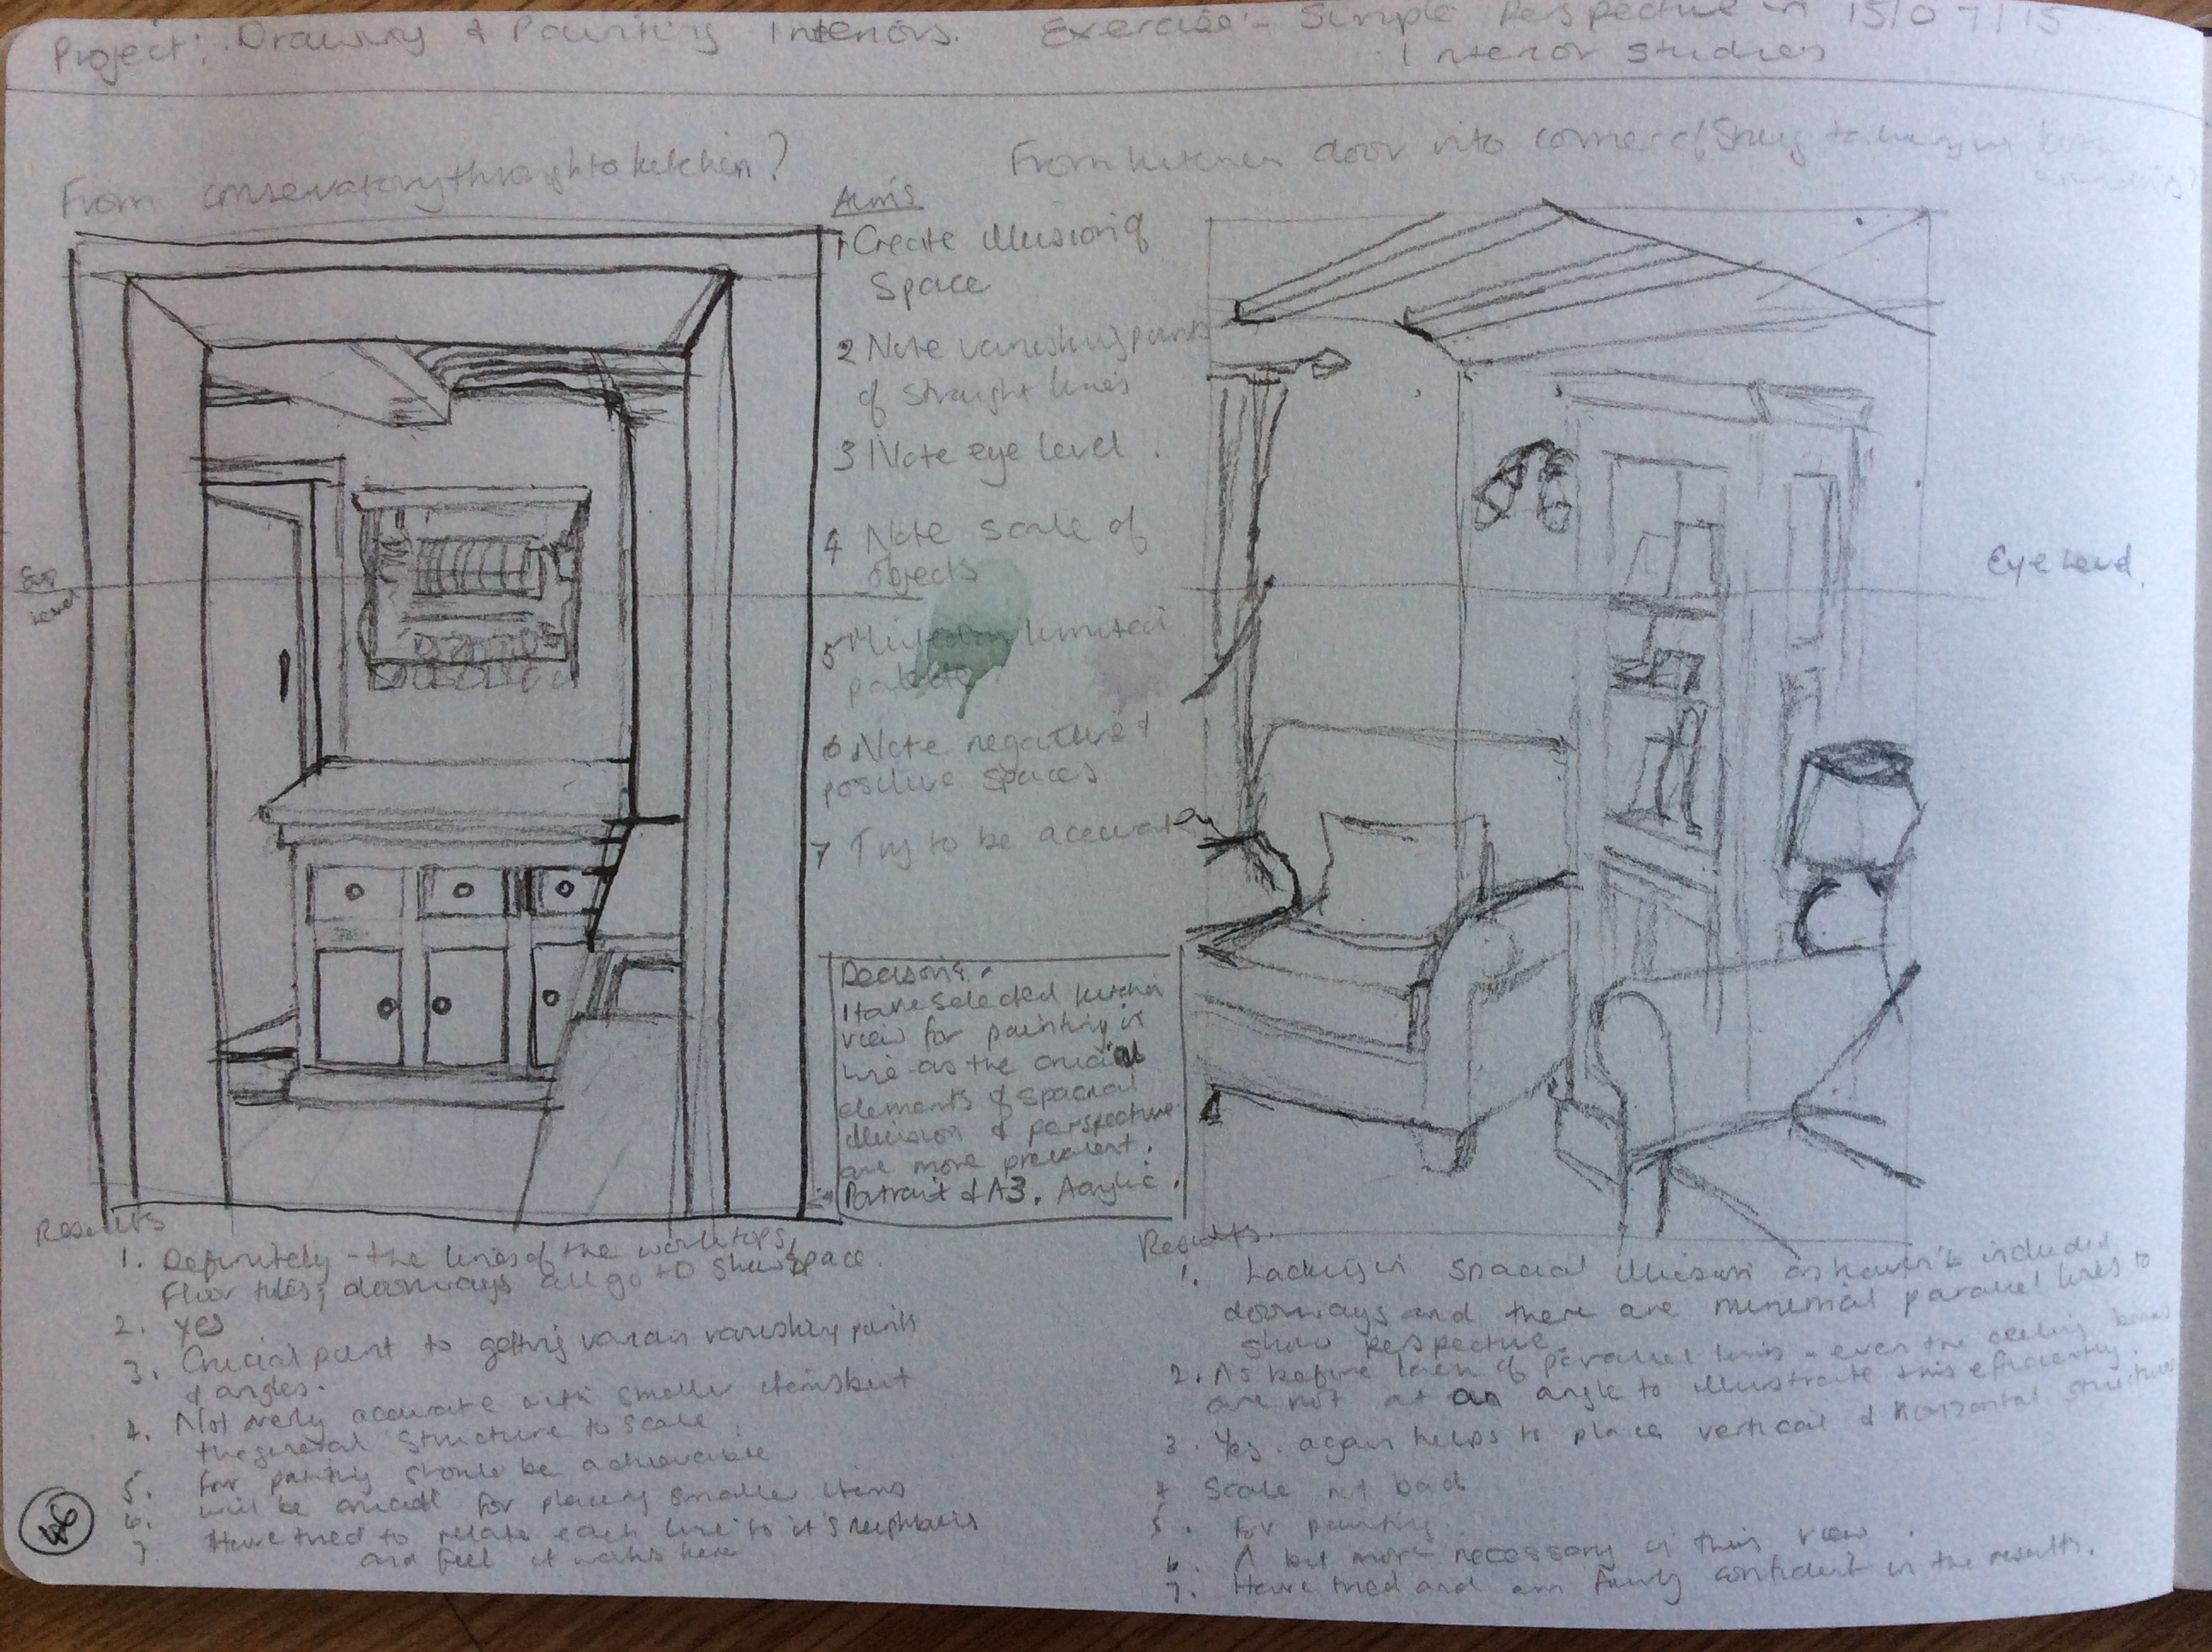 Project: Drawing & Painting Interiors. Exercise:- Simple Perspective in 15/07/15
Interior Studies
From conservatory through to kitchen?
From kitchen door into corner of Snug taking in
Aims
1 Create illusion of
Space
2 Note vanishing points
of straight lines
3 Note eye level.
4 Note scale of
objects
5 limited
palette
6 Note negative &
positive spaces
7 Try to be accurate
Eye
level
Eye Level.
Decisions.
I have selected kitchen
view for painting in
line as the crucial
elements of spacial
illusion & perspective
are more prevalent.
Portrait & A3. Acrylic.
Results
1. Definitely - the lines of the worktops,
floor tiles, doorways all go to show space.
2. Yes
3. Crucial point to getting vanishing points
& angles.
4. Not overly accurate with smaller items but
the general structure to scale.
5. For painting should be achievable
6. will be crucial for placing smaller items
7 Have tried to relate each line to it's neighbours
and feel it works here
Results.
1. Lacking in spacial illusion as haven't included
doorways and there are minimal paralel lines to
show perspective.
2. As before lack of parallel lines - even the ceiling beams
are not at an angle to illustrate this efficiently.
3. Yes. again helps to place vertical & horizontal structures
4 Scale not bad
5. For painting
6. A bit more necessary in this view.
7. Have tried and am fairly confident in the results.
46